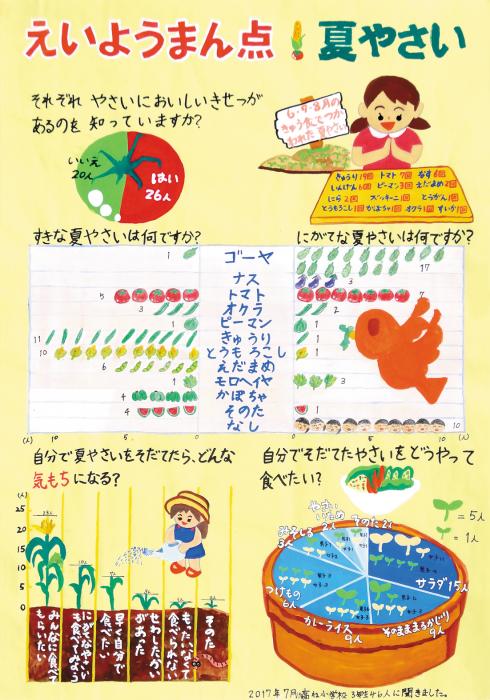 えいようまん点 夏やさい
それぞれ やさいにおいしいきせつが
あるのを 知っていますか?
いいえ
20人
はい
26人
6・7・8月の
きゅう食でつか
われた 夏やさい
きゅうり19回 トマト7回 なす6回
いんげん6回 ピーマン3回 えだまめ2回
にら2回 ズッキーニ1回 とうがん1回
とうもろこし1回 かぼちゃ1回 オクラ1回 すいか1回
すきな夏やさいは何ですか?
にがてな夏やさいは何ですか?
1 ゴーヤ 17
ナス 3
5 トマト 7
3 オクラ 2
1 ピーマン 1
11 きゅうり 1
10 とうもろこし 1
6 えだまめ
1 モロヘイヤ 3
4 かぼちゃ
4 そのた 1
なし 10
(人) 10 5 0
0 5 10 (人)
自分で夏やさいをそだてたら、どんな
気もちになる?
(人)
25
20
15
10
5
0
みんなに食べて
もらいたい
にがてなやさい
も食べてみよう
早く自分で
食べたい
せわしたかい
があった
もったいなくて
食べられない
そのた
自分でそだてたやさいをどうやって
食べたい?
=5人
=1人
サラダ15人
そのまままるかじり
9人
カレーライス
9人
つけもの
6人
みそしる
3人
やさい
いため
2人
そのた2人
2017年7月